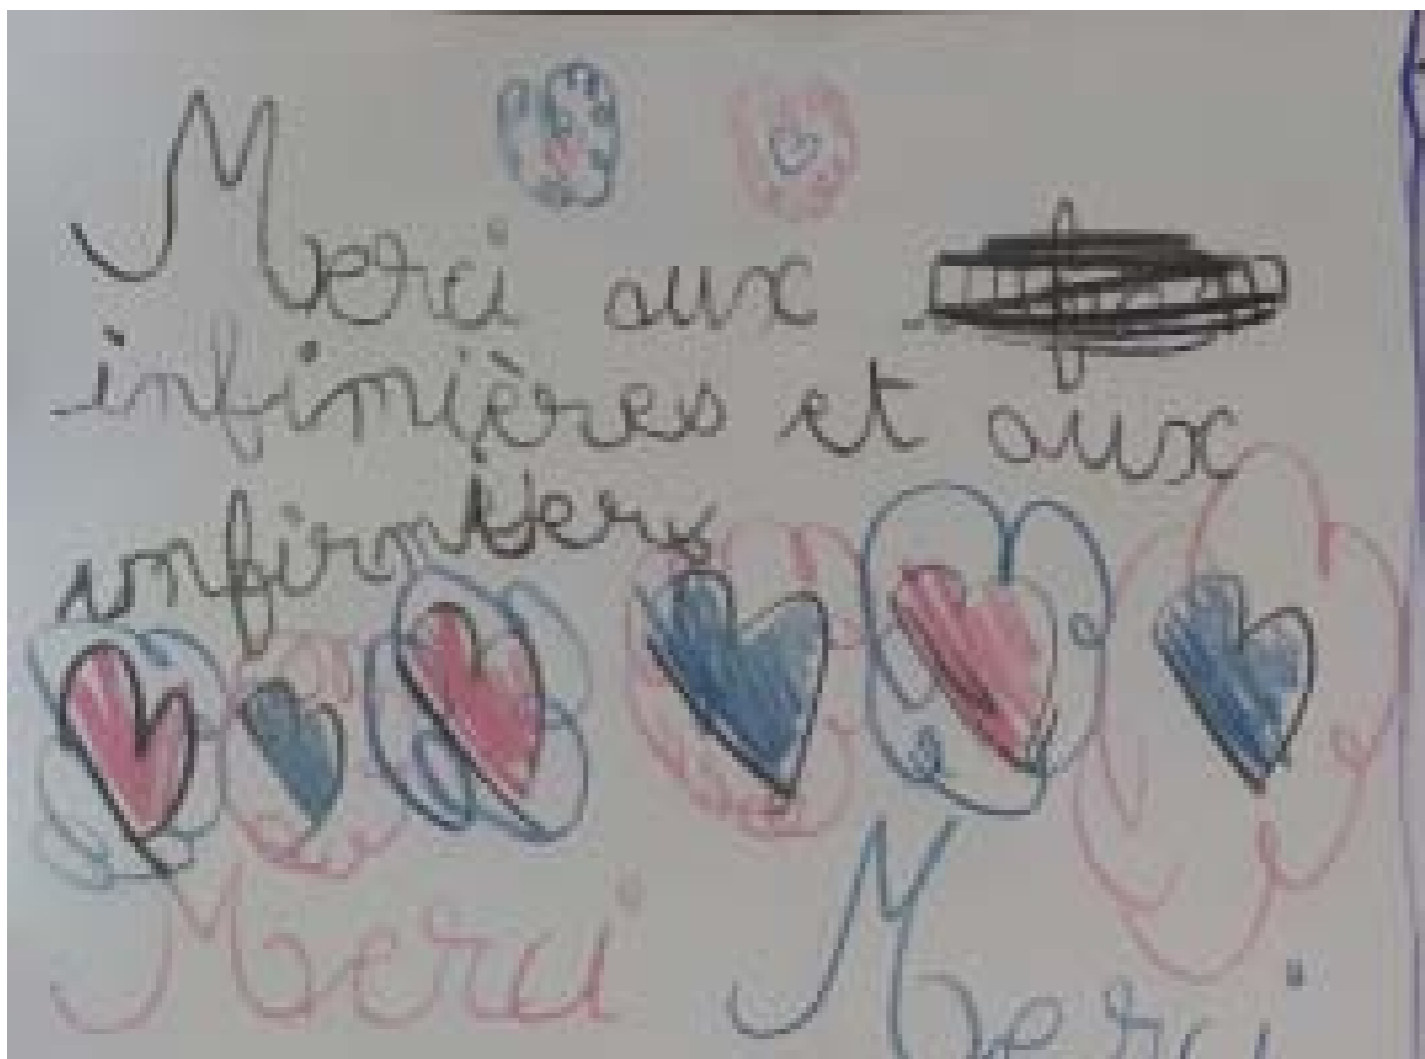 Merci aux
infinières et aux
infirmiers
Merci Merci